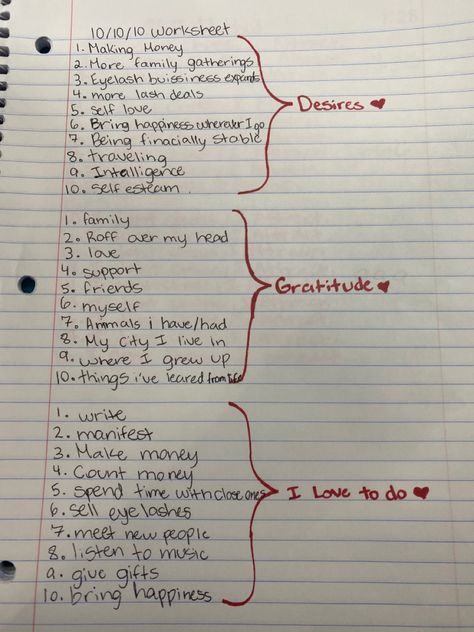 10/10/10 Worksheet
1. Making Money
2. More family gatherings
3. Eyelash buissiness expands
4. more lash deals
5. self love
6. Bring happiness wherever I go
7. Being finacially stable
8. traveling
9. Intelligence
10. self esteam.
Desires ♥
1. family
2. Roff over my head
3. love
4. support
5. friends
6. myself
7. Animals i have/had
8. My city I live in
9. where I grew up
10. things i've leared from life
Gratitude ♥
1. write
2. manifest
3. Make money
4. Count money
5. spend time with close ones
6. sell eyelashes
7. meet new people
8. listen to music
9. give gifts
10. bring happiness
I Love to do ♥